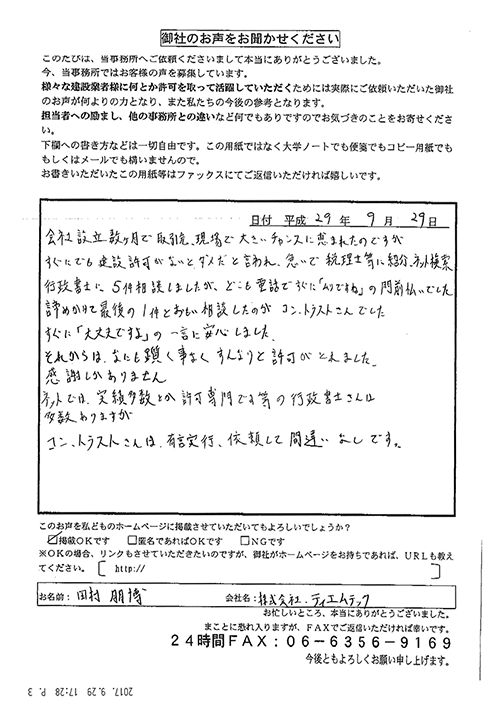 御社のお声をお聞かせください
このたびは、当事務所へご依頼くださいまして本当にありがとうございました。
今、当事務所ではお客様の声を募集しています。
様々な建設業者様に何とか許可を取って活躍していただくためには実際にご依頼いただいた御社
のお声が何よりの力となり、また私たちの今後の参考となります。
担当者への励まし、他の事務所との違いなど何でもありですのでお気づきのことをお寄せくださ
い。
下欄への書き方などは一切自由です。この用紙ではなく大学ノートでも便箋でもコピー用紙でも
もしくはメールでも構いませんので。
お書きいただいたこの用紙等はファックスにてご返信いただければ嬉しいです。
日付 平成 29 年 9 月 29 日
会社設立数ヶ月で取引先、現場で大きいチャンスに恵まれたのですが
すぐにでも建設許可がないとダメだと言われ、急いで税理士等に紹介、ネット検索
行政書士に5件相談しましたが、どこも電話ですぐに「ムリですね」の門前払いでした
諦めかけて最後の1件とおもい相談したのがコントラストさんでした
すぐに「大丈夫ですよ」の一言に安心しました。
それからは、なにも躓く事なくすんなりと許可がとれました。
感謝しかありません
ネットでは、実績多数とか許可専門です等の行政書士さんは
多数ありますが
コントラストさんは、有言実行、依頼して間違いなしです。
このお声を私どものホームページに掲載させていただいてもよろしいでしょうか？
☑掲載OKです □匿名であればOKです □NGです
※OKの場合、リンクもさせていただきたいのですが、御社がホームページをお持ちであれば、URLも教え
てください。[ http:// ]
お名前： 田村 朋博 会社名： 株式会社.ティエムテック
お忙しいところ、本当にありがとうございました。
まことに恐れ入りますが、FAXでご返信いただければ幸いです。
24時間FAX：06－6356－9169
今後ともよろしくお願い申し上げます。
2017. 9.29 17:28 P. 3